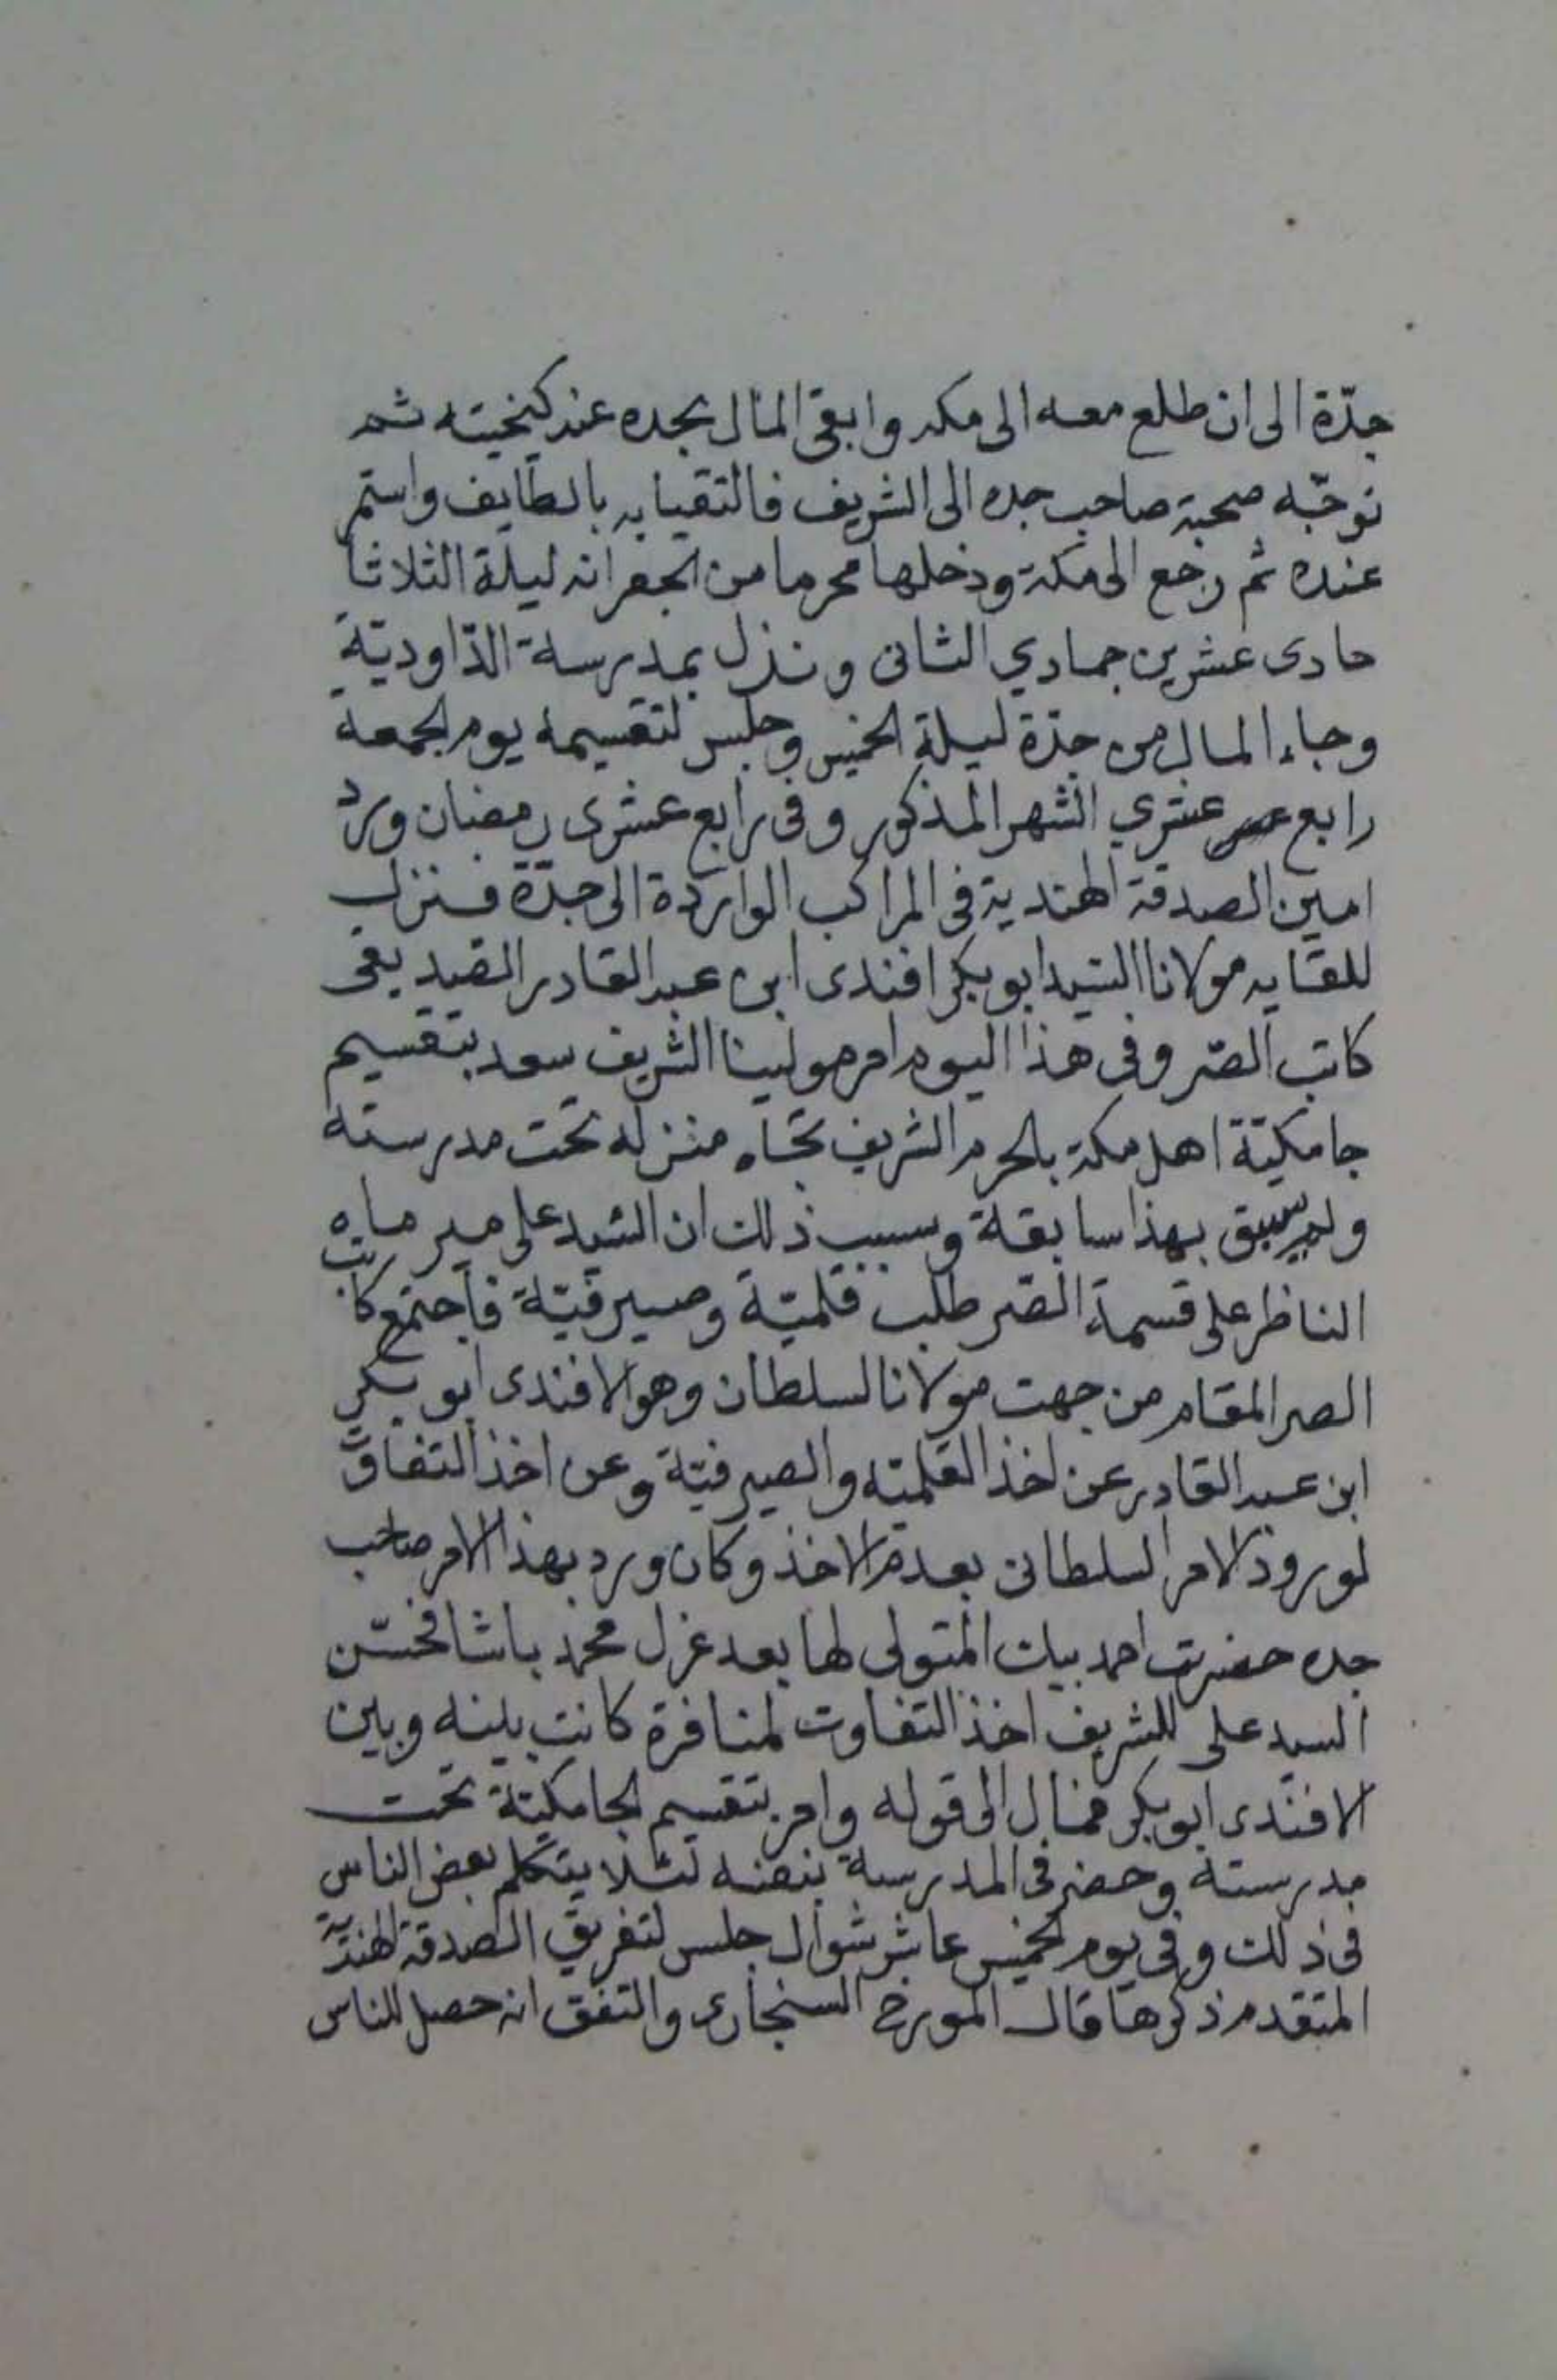 جدّة الى ان طلع معه الى مكه وابقى المال بجده عند كيخيته ثم
توجّه صحبة صاحب جده الى الشريف فالتقيا به بالطايف واستمر
عنده ثم رجع الى مكة ودخلها محرما من الجعرانه ليلة الثلاثا
حادى عشرين جمادي الثانى ونزل بمدرسة الدّاوديّة
وجاء المال من جدّة ليلة الخميس وجلس لتقسيمه يوم الجمعة
رابع عشري الشهر المذكور وفى رابع عشرى رمضان ورد
امين الصدقة الهندية فى المراكب الواردة الى جدّة فنزل
للقايه مولانا السّيد ابو بكر افندى ابن عبد القادر الصّيديقى
كاتب الصّر وفى هذا اليوم امر مولينا الشريف سعد بتقسيم
جامكيّة اهل مكة بالحرم الشريف تجاه منزله تحت مدرسته
ولم يسبق بهذا سابقة وسبب ذلك ان السّيد على مير ماه
الناظر على قسمة الصّر طلب قلميّة وصيرفيّة فاجتمع كاتب
الصر المقام من جهت مولانا السلطان وهو الافندى ابو بكر
ابن عبد القادر عن اخذ القلميّه والصيرفيّة وعن اخذ التفاوت
لورود الامر السلطانى بعدم الاخذ وكان ورد بهذا الامر صاحب
جده حضرت احمد بيك المتولى لها بعد عزل محمد باشا فحسّن
السيد على للشريف اخذ التفاوت لمنافرة كانت بينه وبين
الافندى ابو بكر فمال الى قوله وامر بتقسيم الجامكيّة تحت
مدرسته وحضر فى المدرسة بنفسه لئلا يتكلم بعض الناس
فى ذلك وفى يوم الخميس عاشر شوال جلس لتفريق الصدقة الهنديّة
المتقدم ذكرها قال المورخ السنجارى والتفق انه حصل للناس